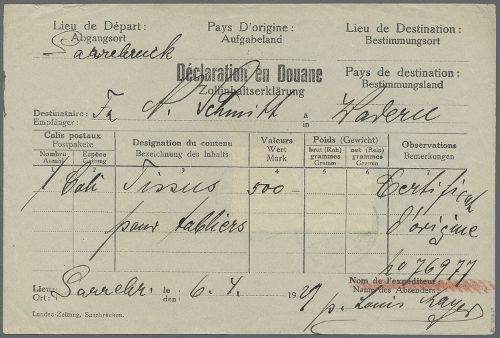 Lieu de Départ: Pays D'origine: Lieu de Destination:
Abgangsort Aufgabeland Bestimmungsort
Sarrebruck
Déclaration en Douane Pays de destination:
Zollinhaltserklärung Bestimmungsland
Destinataire: Fa N. Schmitt a Wadern
Empfänger: in
Colis postaux Designation du contenu Valeurs Poids (Gewicht) Observations
Postpakete Bezeichnung des Inhalts Wert brut (Roh) net (Rein) Bemerkungen
Nombre Espèce Mark grammes grammes
Anzahl Gattung Gramm Gramm
1 2 3 4 5 6 7
1 Coli Tissus 500 - Certificat
pour tabliers d'origine
no 76977
Lieu: Sarrebr. le 6. 4. 1929 Nom de l'expéditeur:
Ort: den Name des Absenders:
p. Louis Mayer
Landes-Zeitung, Saarbrücken.